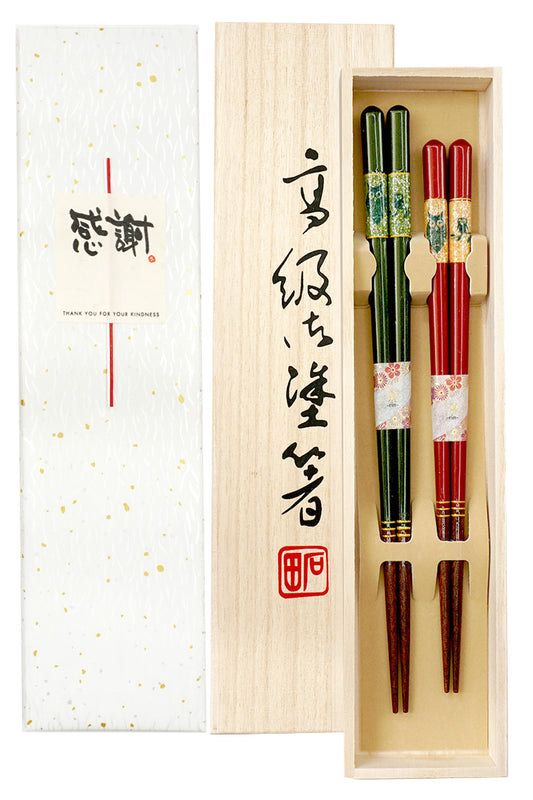 感謝
THANK YOU FOR YOUR KINDNESS
高級御塗箸